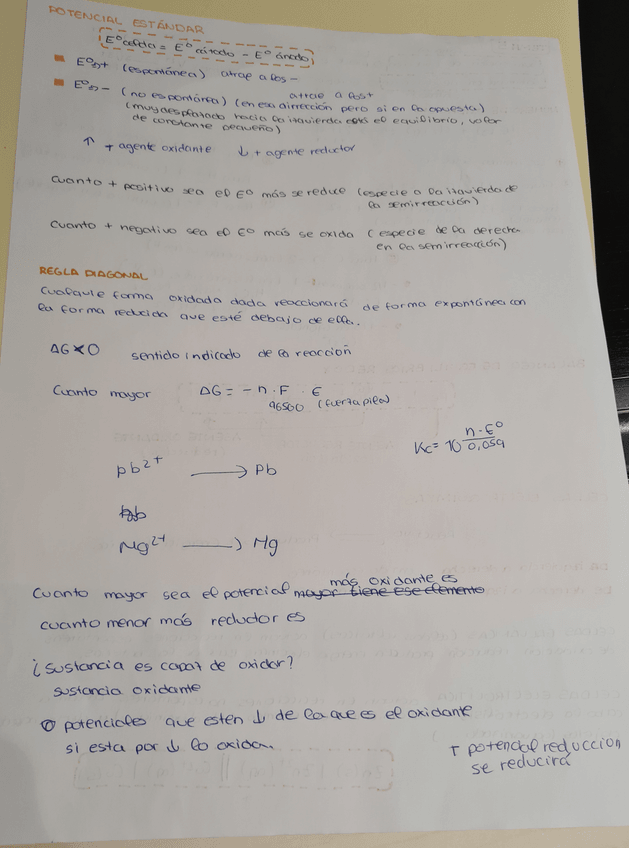 POTENCIAL ESTÁNDAR
E°celda = E° cátodo - E° ánodo
E°→+ (espontánea) atrae a los -
E°→- (no espontánea) atrae a los +
(en esa dirrección pero si en la opuesta)
(muy desplazado hacia la izquierda está el equilibrio, valor
de constante pequeño)
↑ + agente oxidante ↓ + agente reductor
Cuanto + positivo sea el E° más se reduce (especie a la izquierda de
la semirreacción)
Cuanto + negativo sea el E° más se oxida (especie de la derecha
en la semirreacción)
REGLA DIAGONAL
Cualquie forma oxidada dada reaccionará de forma expontánea con
la forma reducida que esté debajo de ella.
ΔG<0 sentido indicado de la reacción
Cuanto mayor ΔG = - n · F · E
96500 (fuerza pila)
Kc= 10 n·E°/0,059
Pb2+ → Pb
Mg2+ → Mg
más oxidante es
Cuanto mayor sea el potencial mayor tiene ese elemento
cuanto menor más reductor es
¿sustancia es capaz de oxidar?
sustancia oxidante
potenciales que esten ↓ de la que es el oxidante
si esta por ↓ lo oxida.
↑ potencial reduccion
se reducirá